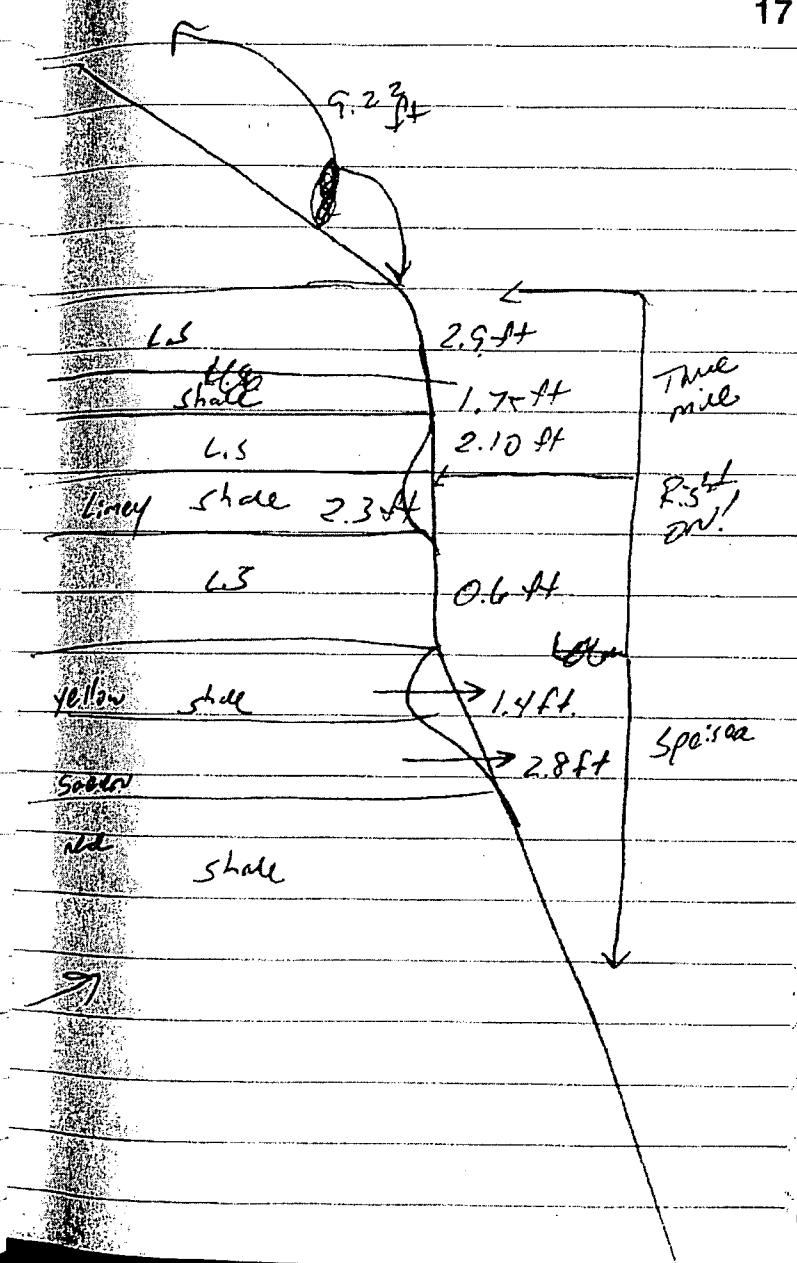 17
9.2² ft
L.S
2.9 ft
shale
1.75 ft
Three
mile
L.S
2.10 ft
Limey shale 2.3 ft
Right
ON!
L.S
0.6 ft
yellow shale
1.4 ft.
Speiser
2.8 ft
Green
red
shale